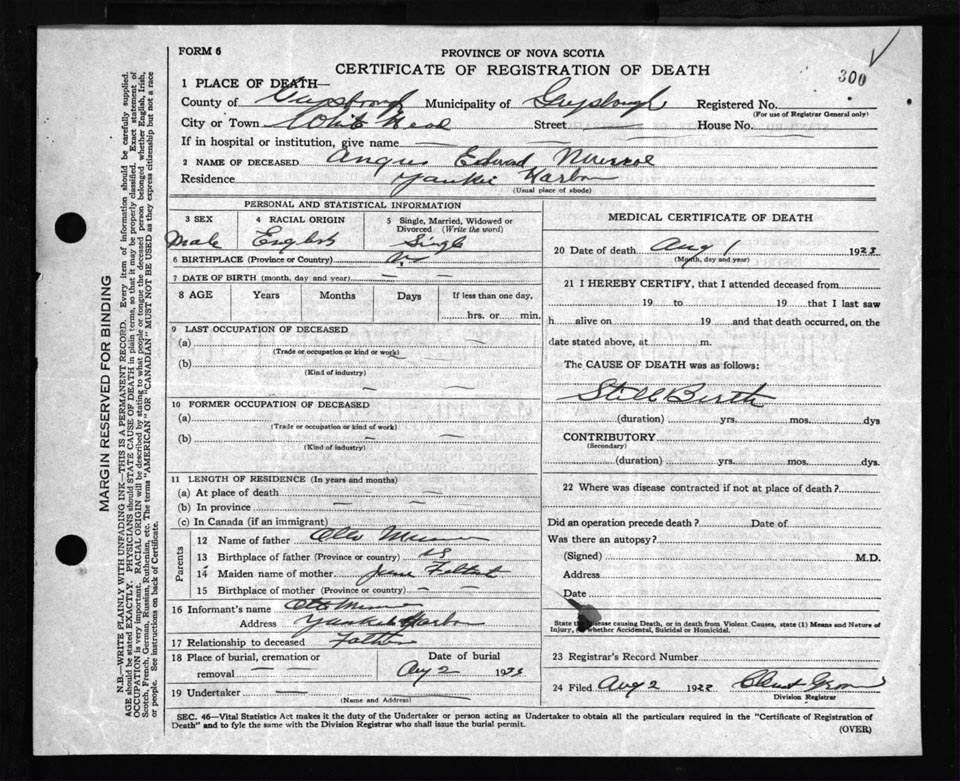 FORM 6
300
PROVINCE OF NOVA SCOTIA
CERTIFICATE OF REGISTRATION OF DEATH
1 PLACE OF DEATH—
County of Guysborough Municipality of Guysborough Registered No.
(For use of Registrar General only)
City or Town White Head Street — House No. —
If in hospital or institution, give name
2 NAME OF DECEASED Angus Edward Munroe
Residence Yankee Harbor
(Usual place of abode)
MARGIN RESERVED FOR BINDING
N.B.—WRITE PLAINLY WITH UNFADING INK—THIS IS A PERMANENT RECORD. Every item of information should be carefully supplied.
AGE should be stated EXACTLY. PHYSICIANS should STATE CAUSE OF DEATH in plain terms, so that it may be properly classified. Exact statement of
OCCUPATION is very important. RACIAL ORIGIN will be described by stating to what people or tongue the deceased person belonged whether English, Irish,
Scotch, French, German, Russian, Ruthenian, etc. The terms "AMERICAN" OR "CANADIAN" MUST NOT BE USED as they express citizenship but not a race
or people. See instructions on back of Certificate.
PERSONAL AND STATISTICAL INFORMATION
3 SEX 4 RACIAL ORIGIN 5 Single, Married, Widowed or
Divorced (Write the word)
Male English Single
6 BIRTHPLACE (Province or Country)
7 DATE OF BIRTH (month, day and year)
8 AGE Years Months Days If less than one day,
hrs. or min.
9 LAST OCCUPATION OF DECEASED
(a)
(Trade or occupation or kind or work)
(b)
(Kind of industry)
10 FORMER OCCUPATION OF DECEASED
(a)
(Trade or occupation or kind of work)
(b)
(Kind of industry)
11 LENGTH OF RESIDENCE (In years and months)
(a) At place of death
(b) In province
(c) In Canada (if an immigrant)
Parents
12 Name of father Munroe
13 Birthplace of father (Province or country)
14 Maiden name of mother
15 Birthplace of mother (Province or country)
16 Informant's name Munroe
Address Yankee Harbor
17 Relationship to deceased Father
18 Place of burial, cremation or
removal
Date of burial
Aug 2 19
19 Undertaker
(Name and Address)
MEDICAL CERTIFICATE OF DEATH
20 Date of death Aug 1 192
(Month, day and year)
21 I HEREBY CERTIFY, that I attended deceased from
19 to 19 that I last saw
h alive on 19 and that death occurred, on the
date stated above, at m.
The CAUSE OF DEATH was as follows:
Still Birth
(duration) yrs. mos. dys
CONTRIBUTORY
(Secondary)
(duration) yrs. mos. dys.
22 Where was disease contracted if not at place of death?
Did an operation precede death? Date of
Was there an autopsy?
(Signed) M.D.
Address
Date
State the disease causing Death, or in death from Violent Causes, state (1) Means and Nature of
Injury, whether Accidental, Suicidal or Homicidal.
23 Registrar's Record Number
24 Filed Aug 2 192
Division Registrar
SEC. 46—Vital Statistics Act makes it the duty of the Undertaker or person acting as Undertaker to obtain all the particulars required in the "Certificate of Registration of
Death" and to fyle the same with the Division Registrar who shall issue the burial permit.
(OVER)